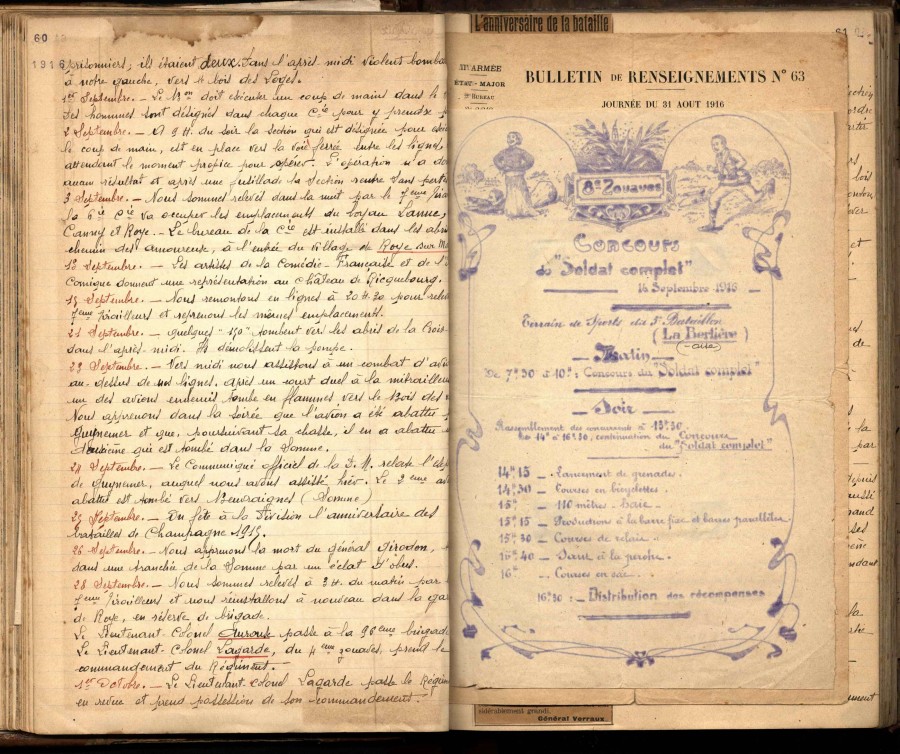 60
1916
prisonniers; ils étaient deux. Dans l'après midi violent bomba
à notre gauche, vers le bois des Loges.
1er Septembre. — Le 13on doit exécuter un coup de main dans le
Des hommes sont désignés dans chaque Cie pour y prendre p
2 Septembre. — A 9 H. du soir la Section qui est désignée pour
le coup de main, est en place vers la voie ferrée entre les lignes,
attendant le moment propice pour opérer. L'opération n'a do
aucun résultat et après une fusillade la Section rentre sans perte
3 Septembre. — Nous sommes relevés dans la nuit par le 7ème Tira
la 6ie Cie va occuper les emplacements du boyau Lanne,
Canny et Roye. Le bureau de la Cie est installé dans les abris
chemin des amoureuse, à l'entrée du village de Roye sur Ma
Septembre. — Les artistes de la Comédie-Française et de l'
Comique donnent une représentation au Château de Ricquebourg.
15 Septembre. — Nous remontons en lignes à 20 H 30 pour rele
7ème Tirailleurs et reprenons les mêmes emplacements.
21 Septembre. — Quelques "150" tombent vers les abris de la Crois
dans l'après-midi. Ils démolissent la pompe.
23 Septembre. — Vers midi nous assistons à un combat d'avi
au-dessus de nos lignes. Après un court duel à la mitrailleu
un des avions ennemis tombe en flammes vers le Bois des
Nous apprenons dans la soirée que l'avion a été abattu
Guynemer et que, poursuivant sa chasse, il en a abattu
deuxième qui est tombé dans la Somme.
24 Septembre. — Le Communiqué officiel de la D.M. relate l'
de Guynemer, auquel nous avons assisté hier. Le 2ème av
abattu est tombé vers Beuvraignes (Somme)
25 Septembre. — On fête à la Division l'anniversaire des
batailles de Champagne 1915.
26 Septembre. — Nous apprenons la mort du général Girodon,
dans une tranchée de la Somme par un éclat d'obus.
28 Septembre. — Nous sommes relevés à 3 H. du matin par
7ème Tirailleurs et nous réinstallons à nouveau dans la ga
de Roye, en réserve de brigade.
Le Lieutenant-Colonel Auroux passe à la 96ème brigade
Le Lieutenant-Colonel Lagarde, du 4ème zouaves, prend le
commandement du Régiment.
1er Octobre. — Le Lieutenant-Colonel Lagarde passe le Régim
en revue et prend possession de son commandement.
L'anniversaire de la bataille
ARMÉE
ÉTAT-MAJOR
2e BUREAU
BULLETIN DE RENSEIGNEMENTS N° 63
JOURNÉE DU 31 AOUT 1916
8e Zouaves
Concours
du "Soldat complet"
14 Septembre 1916
Terrain de Sports du 5e Bataillon
(La Berlière)
Oise
Matin
De 7h30 à 10h: Concours du "Soldat complet"
Soir
Rassemblement des concurrents à 13h30.
De 14h à 16h30, continuation du Concours
du "Soldat complet"
14h15 — Lancement de grenades.
14h30 — Courses en bicyclettes.
15h — 110 mètres haie.
15h15 — Production à la barre fixe et barres parallèles.
15h30 — Courses de relais.
15h40 — Saut à la perche.
16h — Courses en sac.
16h30 : — Distribution des récompenses
sidérablement grandi.
Général Verraux.